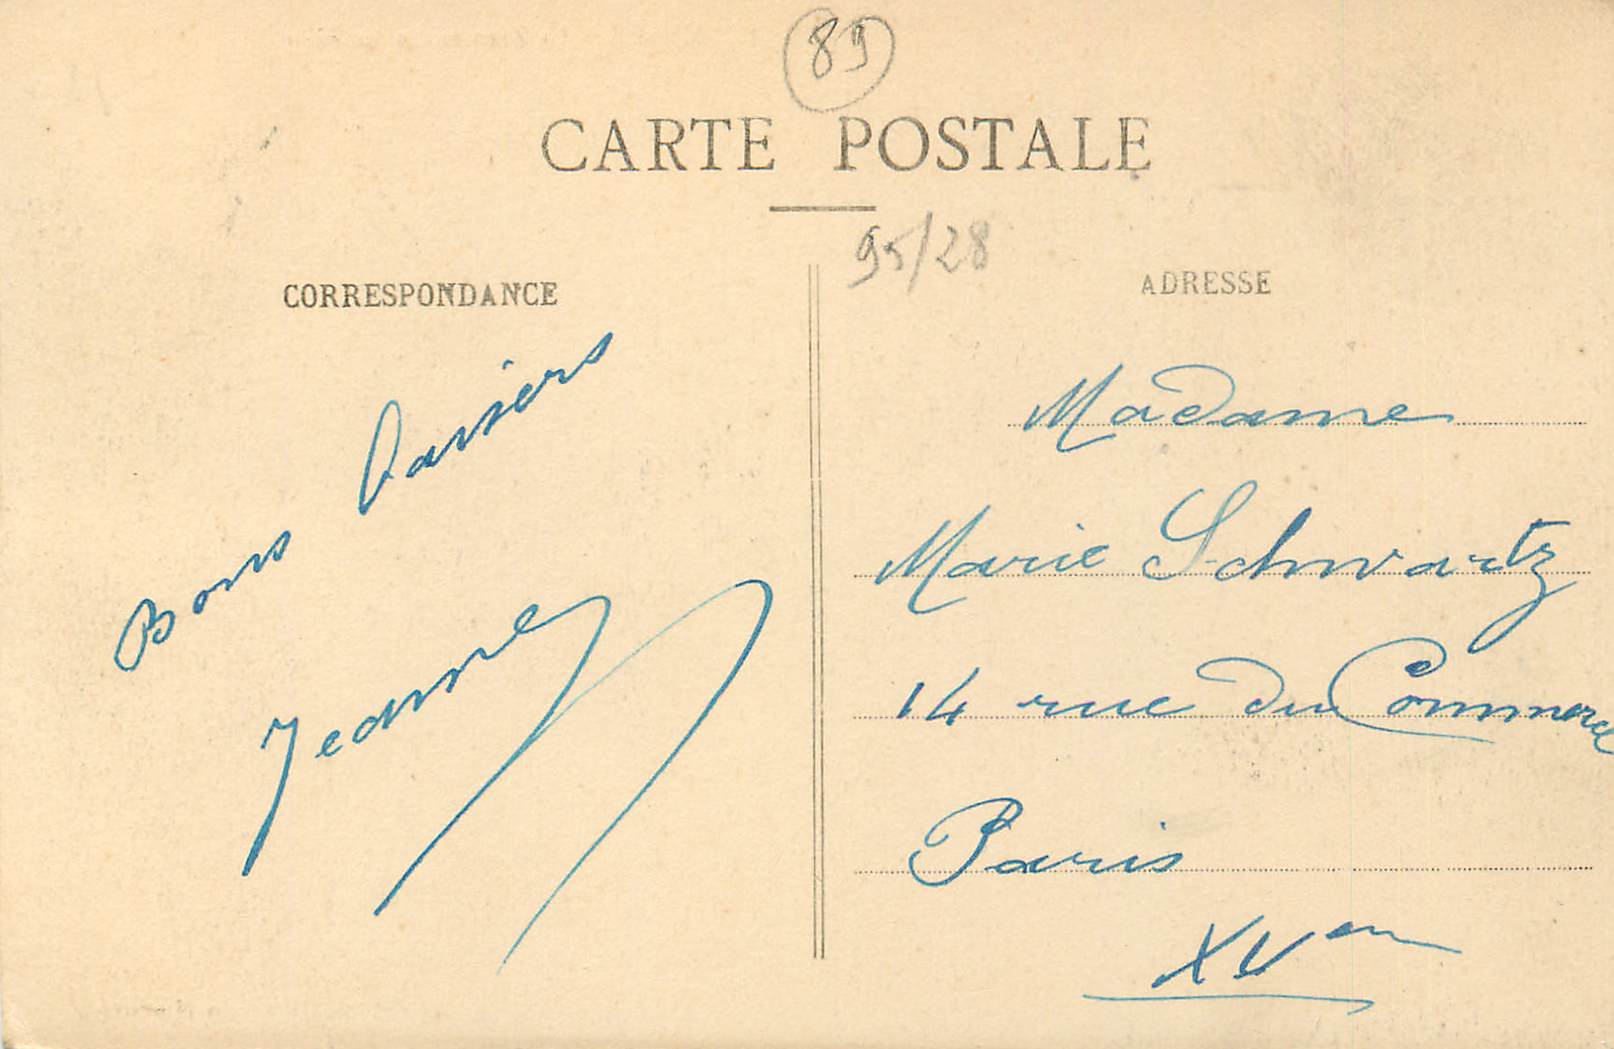 89
CARTE POSTALE
95/28
CORRESPONDANCE
Bons baisers
Jeanne
ADRESSE
Madame
Marie Schwartz
14 rue du Commerce
Paris
XVem